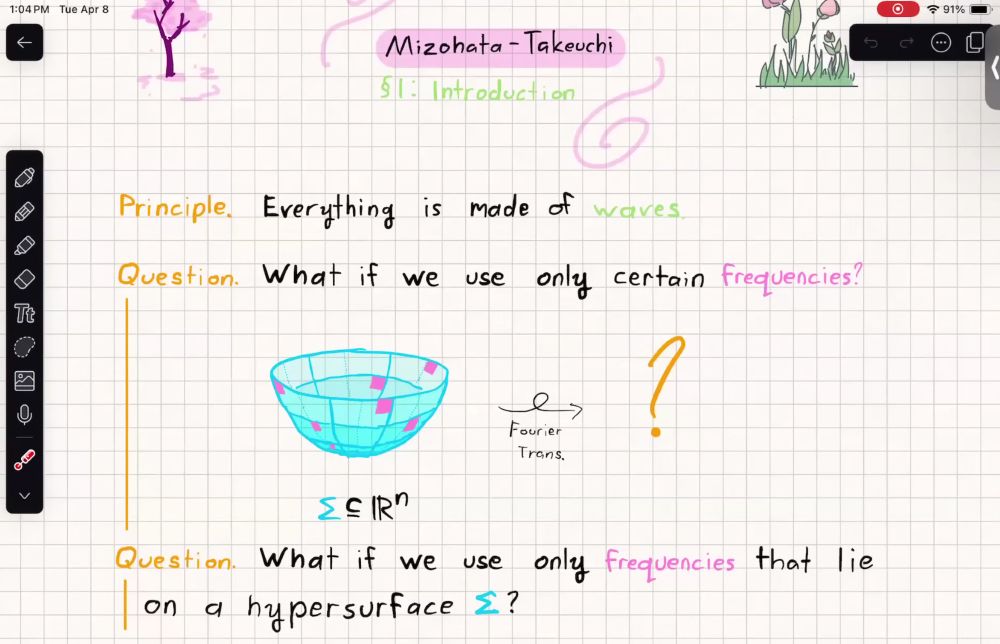 1:04 PM Tue Apr 8
91%
Mizohata-Takeuchi
§1: Introduction
Tt
Principle. Everything is made of waves.
Question. What if we use only certain frequencies?
?
Fourier
Trans.
Σ ⊆ ℝⁿ
Question. What if we use only frequencies that lie
on a hypersurface Σ?